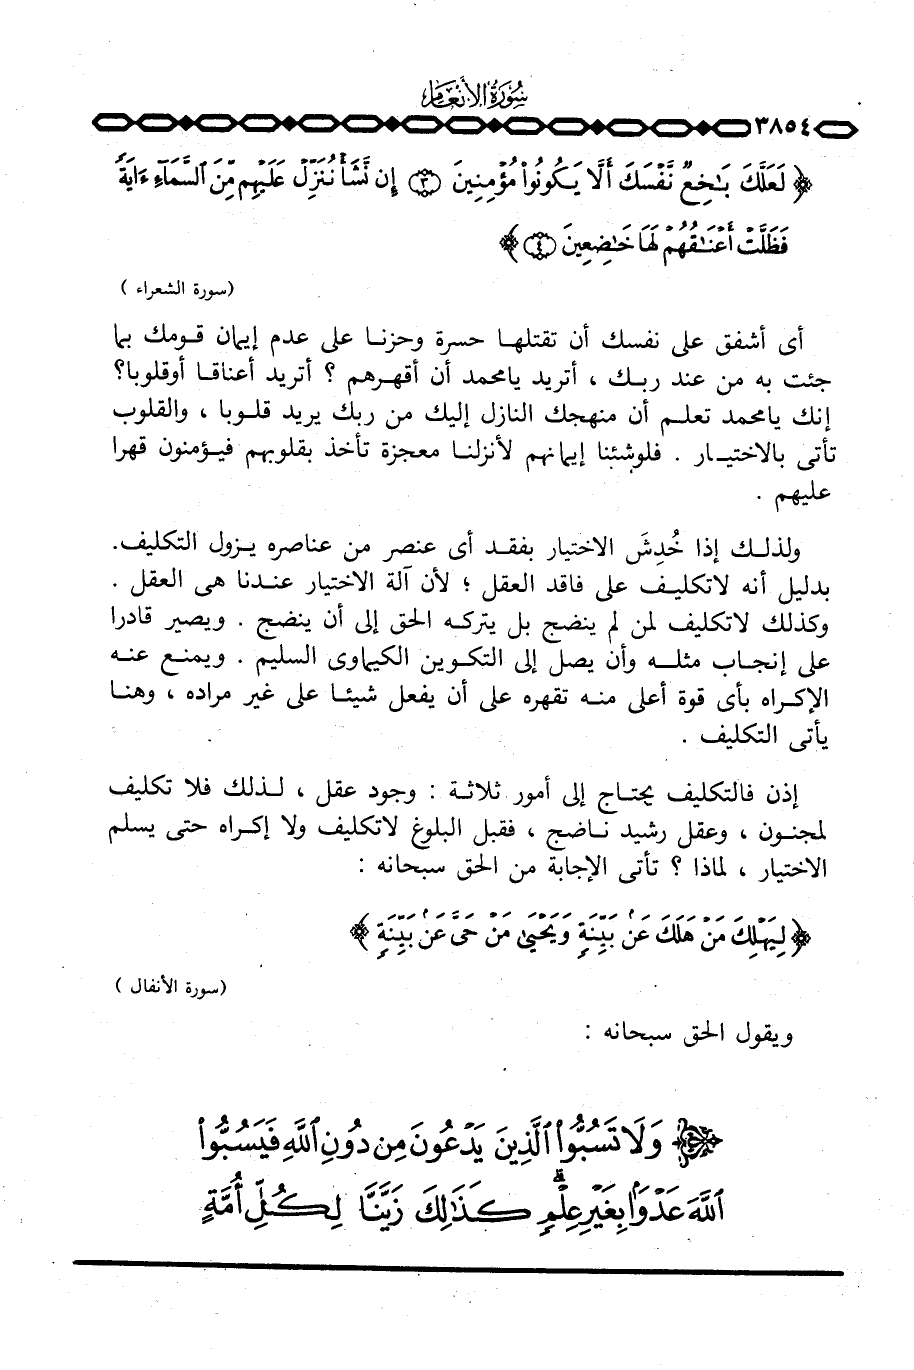 سورة الأنعام
٣٨٥٤
﴿ لَعَلَّكَ بَٰخِعٌ نَّفْسَكَ أَلَّا يَكُونُوا۟ مُؤْمِنِينَ ٣ إِن نَّشَأْ نُنَزِّلْ عَلَيْهِم مِّنَ ٱلسَّمَآءِ ءَايَةً
فَظَلَّتْ أَعْنَٰقُهُمْ لَهَا خَٰضِعِينَ ٤ ﴾
(سورة الشعراء )
أى أشفق على نفسك أن تقتلها حسرة وحزنا على عدم إيمان قومك بما
جئت به من عند ربك ، أتريد يامحمد أن أقهرهم ؟ أتريد أعناقا أوقلوبا؟
إنك يامحمد تعلم أن منهجك النازل إليك من ربك يريد قلوبا ، والقلوب
تأتى بالاختيار . فلوشئنا إيمانهم لأنزلنا معجزة تأخذ بقلوبهم فيؤمنون قهرا
عليهم .
ولذلك إذا خُدِشَ الاختيار بفقد أى عنصر من عناصره يزول التكليف.
بدليل أنه لاتكليف على فاقد العقل ؛ لأن آلة الاختيار عندنا هى العقل .
وكذلك لاتكليف لمن لم ينضج بل يتركه الحق إلى أن ينضج . ويصير قادرا
على إنجاب مثله وأن يصل إلى التكوين الكيماوى السليم . ويمنع عنه
الإكراه بأى قوة أعلى منه تقهره على أن يفعل شيئا على غير مراده ، وهنا
يأتى التكليف .
إذن فالتكليف يحتاج إلى أمور ثلاثة : وجود عقل ، لذلك فلا تكليف
لمجنون ، وعقل رشيد ناضج ، فقبل البلوغ لاتكليف ولا إكراه حتى يسلم
الاختيار ، لماذا ؟ تأتى الإجابة من الحق سبحانه :
﴿ لِيَهْلِكَ مَنْ هَلَكَ عَنۢ بَيِّنَةٍ وَيَحْيَىٰ مَنْ حَىَّ عَنۢ بَيِّنَةٍ ﴾
(سورة الأنفال )
ويقول الحق سبحانه :
﴿ وَلَا تَسُبُّوا۟ ٱلَّذِينَ يَدْعُونَ مِن دُونِ ٱللَّهِ فَيَسُبُّوا۟
ٱللَّهَ عَدْوًۢا بِغَيْرِ عِلْمٍۗ كَذَٰلِكَ زَيَّنَّا لِكُلِّ أُمَّةٍ